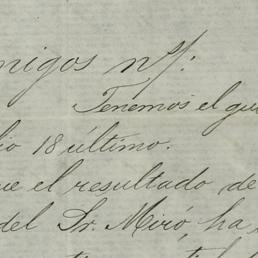 migos n/:
Tenemos el gu
io 18 último.
ue el resultado de
del Sr. Miró, ha